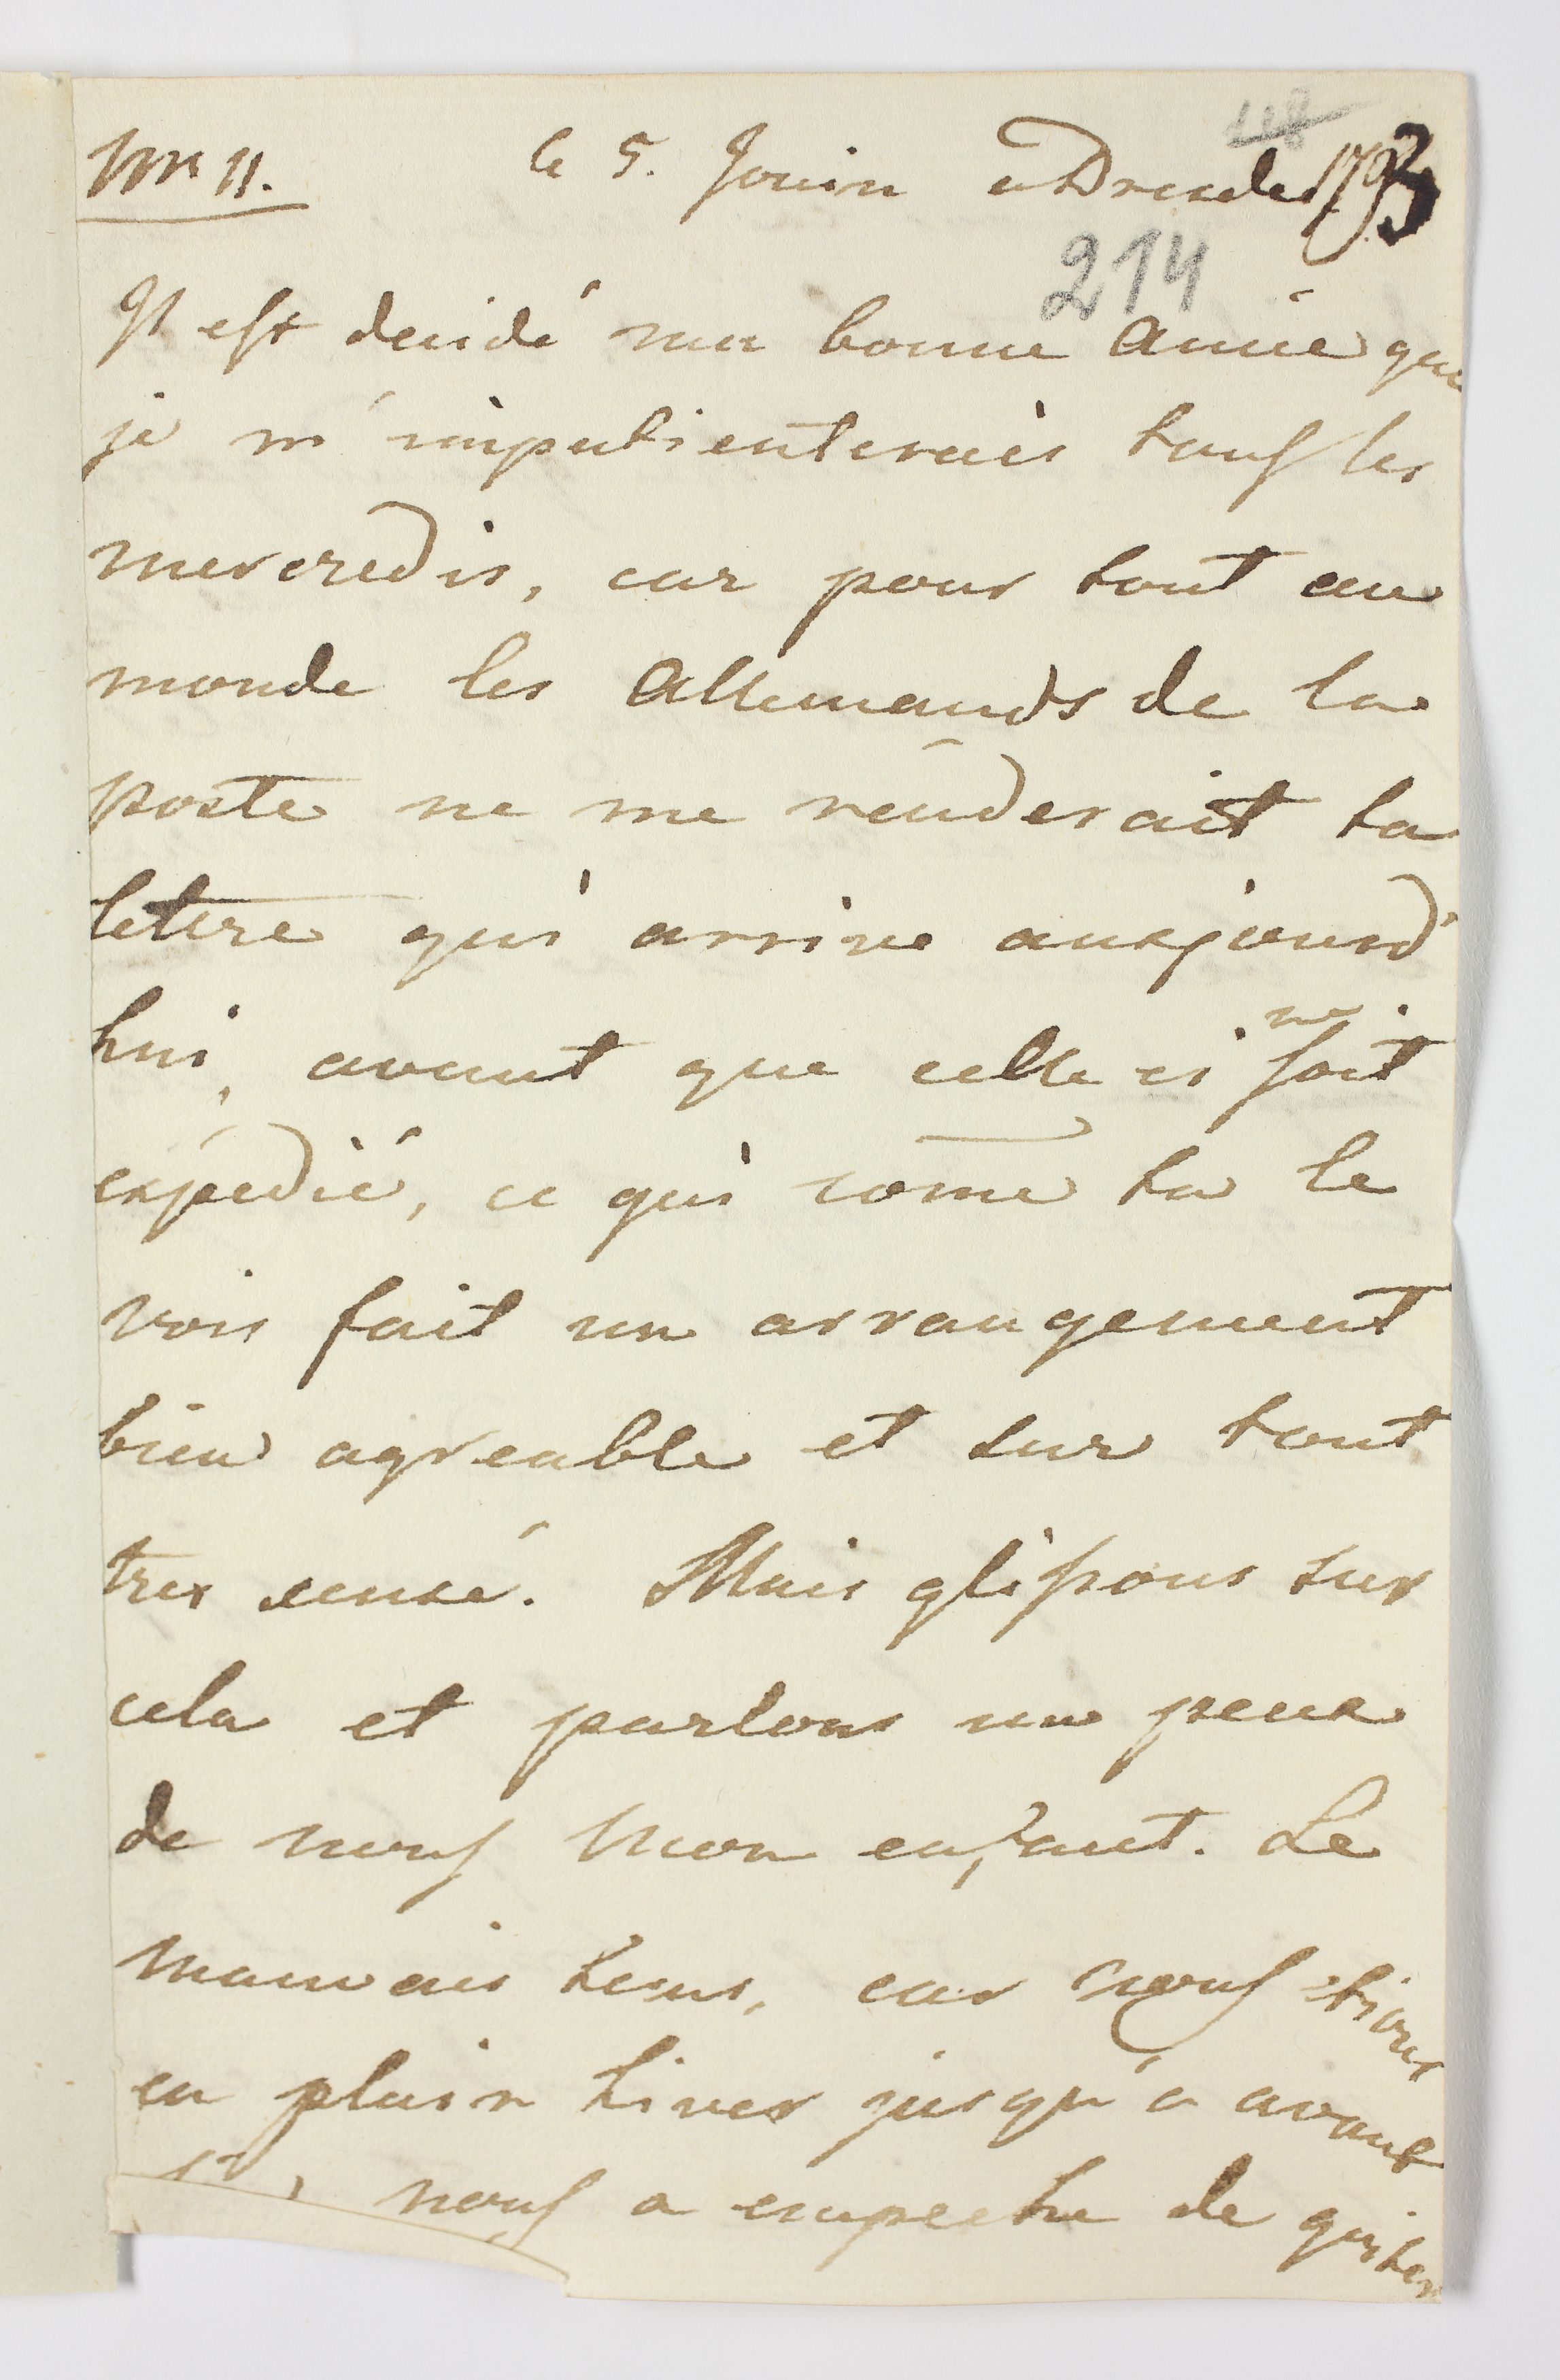 Nr 11. le 5. Jouin a Dresde 1793
118
214
Il est decidé ma bonne Amie que
je m'impatienterais tous les
mercredis, car pour tout au
monde les Allemands de la
poste ne me renderait ta
lettre qui arrive auxjourd'
hui, avant que celle ci ne soit
expédié, ce qui come tu le
vois fait un arrangement
bien agreable et sur tout
tres sensé. Mais glissons sur
cela et parlons un peux
de nous Mon enfant. Le
mauvais tems, car nous etions
en plain hiver jusqu'a avant
nous a empeche de quiter